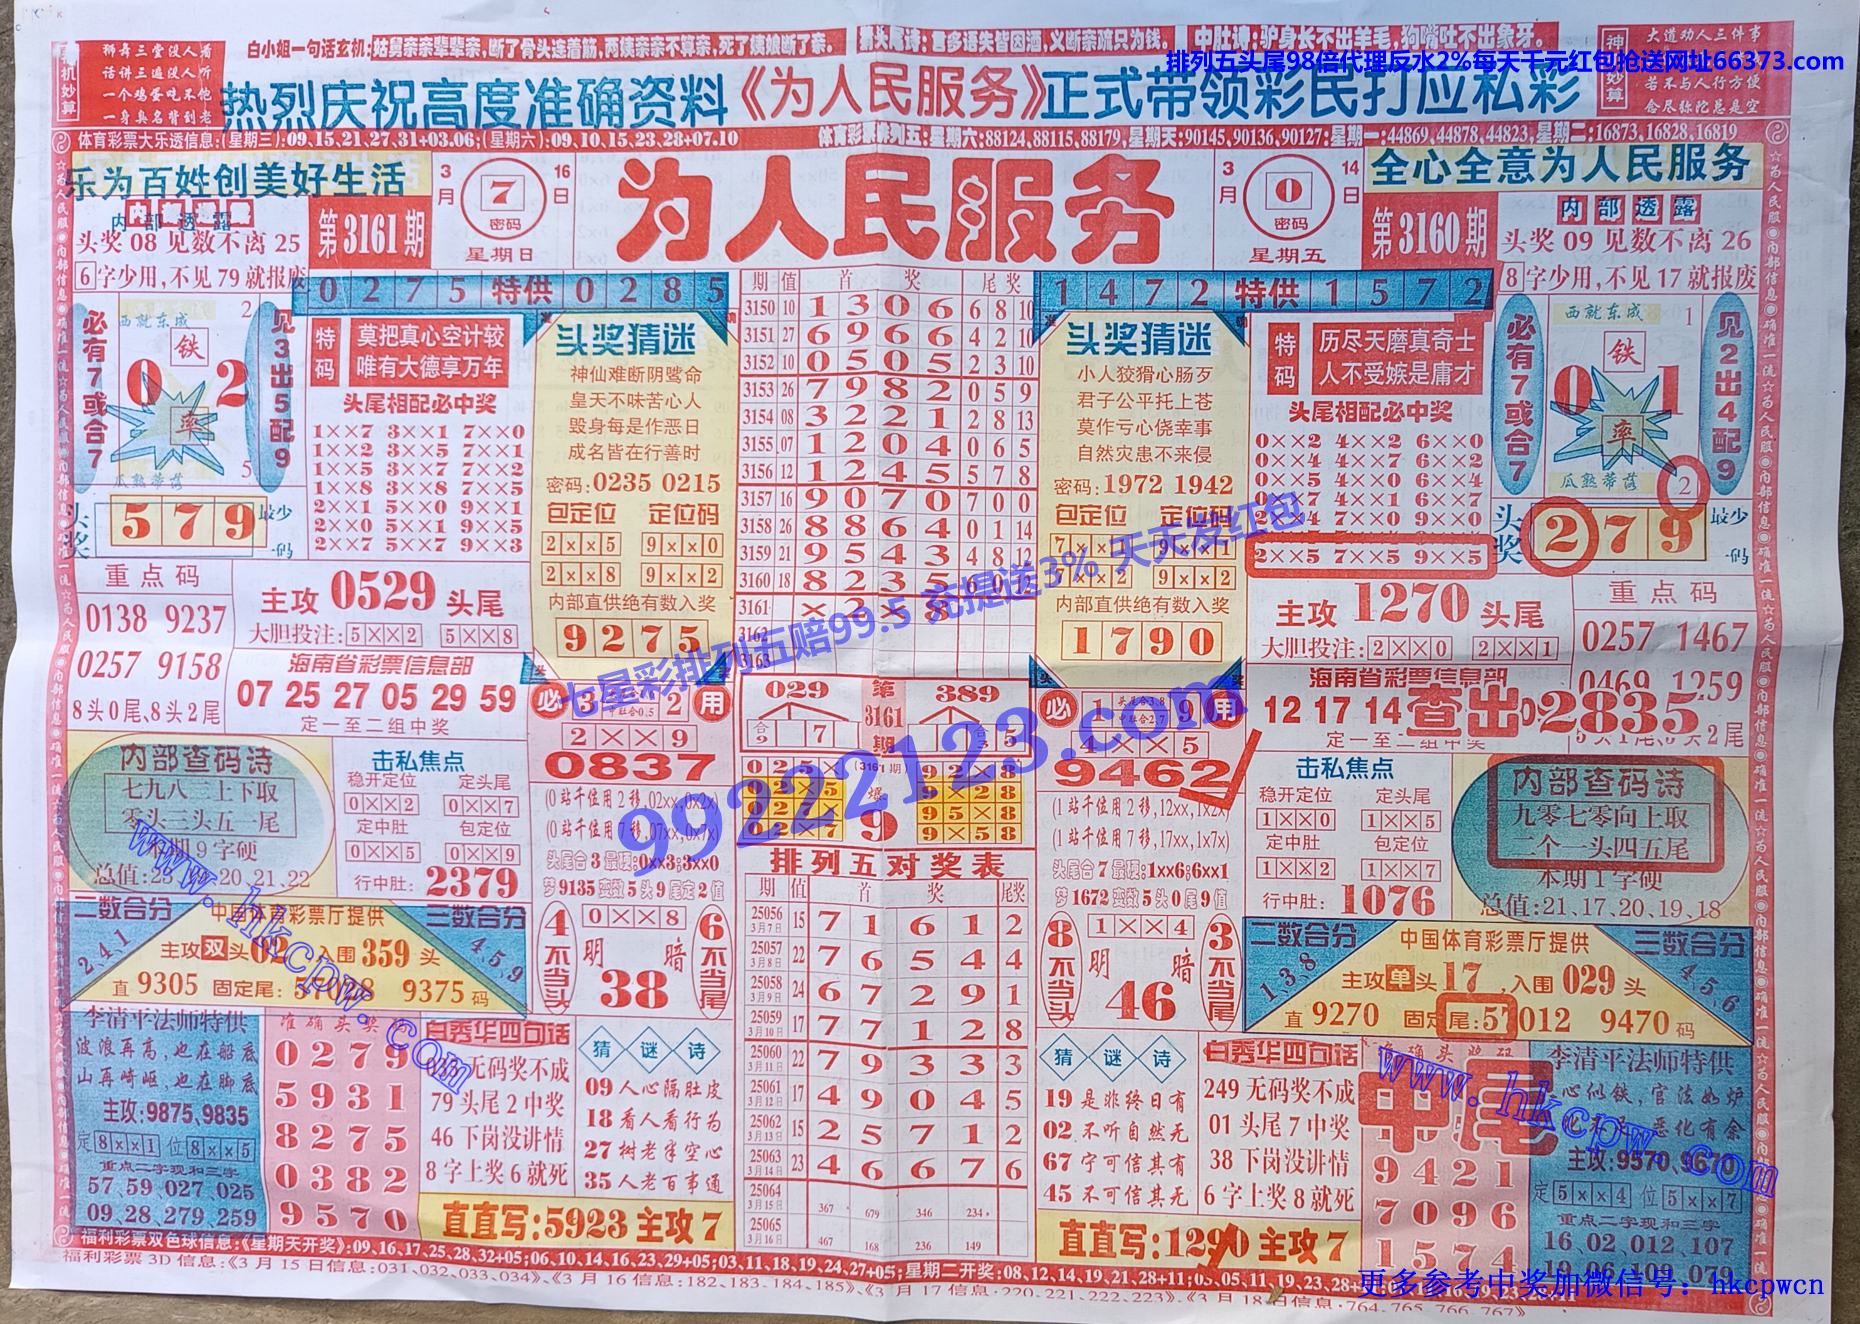 白小姐一句话玄机:姑舅亲亲辈辈亲,断了骨头连着筋,两姨亲亲不算亲,死了姨娘断了亲。
狮舞三堂没人看
话讲三遍没人听
一个鸡蛋吃不饱
一身臭名背到老
大道劝人三件事
若不与人行方便
念尽弥陀总是空
排列五头尾98倍代理反水2%每天千元红包抢送网址66373.com
热烈庆祝高度准确资料《为人民服务》正式带领彩民打应私彩
体育彩票大乐透信息:(星期三):09,15,21,27,31+03,06;(星期六):09,10,15,23,28+07,10
体育彩票排列五:星期六:88124,88115,88179,星期天:90145,90136,90127:星期一:44869,44878,44823,星期二:16873,16828,16819
乐为百姓创美好生活
内部透露
头奖 08 见数不离 25
6字少用,不见 79 就报废
第3161期
3月16日
7
密码
星期日
为人民服务
3月14日
0
密码
星期五
第3160期
全心全意为人民服务
内部透露
头奖 09 见数不离 26
8字少用,不见 17 就报废
0275特供0285
必有7或合7
西就东成
铁
0 2
率
瓜熟蒂落
见3出5配9
头奖
579
最少一码
特码
莫把真心空计较
唯有大德享万年
头尾相配必中奖
1××7 3××1 7××0
1××2 3××5 7××1
1××5 3××7 7××2
1××8 3××8 7××5
2××1 5××0 9××1
2××0 5××1 9××1
2××7 5××7 9××3
头奖猜迷
神仙难断阴骘命
皇天不昧苦心人
毁身每是作恶日
成名皆在行善时
密码:0235 0215
包定位 定位码
2××5 9××0
2××8 9××2
内部直供绝有数入奖
9275
期 值 首奖 尾奖
3150 10 1 3 0 6 6 8 10
3151 27 6 9 6 6 4 2 10
3152 10 0 5 0 5 2 3 10
3153 26 7 9 8 2 0 5 9
3154 08 3 2 2 1 2 8 13
3155 07 1 2 0 4 0 6 5
3156 12 1 2 4 5 5 7 8
3157 16 9 0 7 0 7 0 0
3158 26 8 8 6 4 0 1 14
3159 21 9 5 4 3 4 8 12
3160 18 8 2 3 5 6 0 12
3161 × 2 × 8
3162
3163
1472特供1572
头奖猜迷
小人狡猾心肠歹
君子公平托上苍
莫作亏心侥幸事
自然灾患不来侵
密码:1972 1942
包定位 定位码
7××1 9××1
7××2 9××2
内部直供绝有数入奖
1790
特码
历尽天磨真奇士
人不受嫉是庸才
头尾相配必中奖
0××2 4××2 6××0
0××4 4××7 6××2
0××5 4××0 6××6
0××7 4××1 6××7
2××4 7××0 9××0
2××5 7××5 9××5
必有7或合7
西就东成
铁
0 1
率
瓜熟蒂落
2
见2出4配9
头奖
279
最少一码
重点码
0138 9237
0257 9158
8头0尾、8头2尾
主攻 0529 头尾
大胆投注: 5××2 5××8
海南省彩票信息部
07 25 27 05 29 59
定一至二组中奖
主攻 1270 头尾
大胆投注: 2××0 2××1
海南省彩票信息部
12 17 14
定一至二组中奖
查出2835
重点码
0257 1467
0469 1259
七星彩排列五赔99.5 充提送3% 天天发红包
99222123.com
内部查码诗
七九八三上下取
零头三头五一尾
本期9字硬
击私焦点
稳开定位 定头尾
0××2 0××7
定中肚 包定位
0××5 0××9
行中肚: 2379
必 3 2 用
2××9
0837
(0 站千位用 2 移,02xx,0x2x)
(0 站千位用 7 移,07xx,0x7x)
头尾合 3 最硬:0xx3;3xx0
梦 9135 变数 5 头 9 尾定 2 值
4不当头
0××8
明 暗
38
6不当尾
029 第3161期 389
合 7
合 5
(3161期)
爆 9
025× 92×8
02×5 9×28
027× 95×8
02×7 9×58
排列五对奖表
期 值 首奖 尾奖
25056 3月7日 15 7 1 6 1 2
25057 3月8日 22 7 6 5 4 4
25058 3月9日 24 6 7 2 9 1
25059 3月10日 17 7 7 1 2 8
25060 3月11日 22 7 9 3 3 3
25061 3月12日 17 4 9 0 4 5
25062 3月13日 15 2 5 7 1 2
25063 3月14日 23 4 6 6 7 6
25064 3月15日 367 679 346 234
25065 3月16日 467 168 236 149
必 1 9 用
4××5
9462
(1 站千位用 2 移,12xx,1x2x)
(1 站千位用 7 移,17xx,1x7x)
头尾合 7 最硬:1xx6;6xx1
梦 1672 变数 5 头 0 尾 9 值
8不当头
1××4
明 暗
46
3不当尾
击私焦点
稳开定位 定头尾
1××0 1××5
定中肚 包定位
1××2 1××7
行中肚: 1076
内部查码诗
九零七零向上取
二个一头四五尾
本期1字硬
总值:21、17、20、19、18
二数合分 2,4,1
中国体育彩票厅提供
三数合分 4,5,9
主攻双头02,入围359头
直 9305 固定尾: 9375 码
二数合分 1,3,8
中国体育彩票厅提供
三数合分 4,5,6
主攻单头17,入围029头
直 9270 固定尾:57012 9470 码
李清平法师特供
波浪再高,也在船底
山再崎岖,也在脚底
主攻:9875,9835
定8××1 位8××5
重点二字现和三字
57、59、027、025
09、28、279、259
准确头奖
0279
5931
8275
0382
9570
白秀华四句话
无码奖不成
79 头尾 2 中奖
46 下岗没讲情
8 字上奖 6 就死
猜谜诗
09 人心隔肚皮
18 看人看行为
27 树老半空心
35 人老百事通
直直写:5923 主攻 7
猜谜诗
19 是非终日有
02 不听自然无
67 宁可信其有
45 不可信其无
白秀华四句话
249 无码奖不成
01 头尾 7 中奖
38 下岗没讲情
6 字上奖 8 就死
直直写:1290 主攻 7
中尾
9421
7096
1574
李清平法师特供
心似铁,官法如炉
恶化有余
主攻:9570,9670
定5××4 位5××7
重点二字现和三字
16、02、012、107
19、06、109、079
www.hkcpw.com
www.hkcpw.com
福利彩票双色球信息:《星期天开奖》:09,16,17,25,28,32+05;06,10,14,16,23,29+05;03,11,18,19,24,27+05;星期二开奖:08,12,14,19,21,28+11;03,05,11,19,23,28+
福利彩票 3D 信息:《3 月 15 日信息:031,032,033,034》、《3 月 16 信息:182,183,184,185》、《3 月 17 信息:220,221,222,223》、《3 月 18 日信息:764,765,766,767》
更多参考中奖加微信号: hkcpwcn